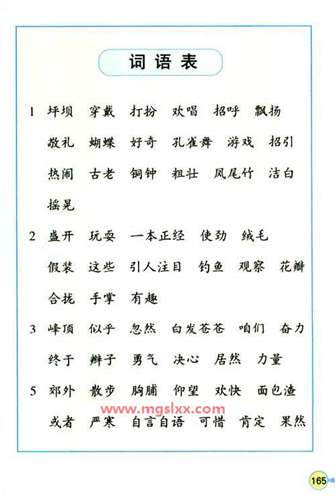 词语表
1 坪坝 穿戴 打扮 欢唱 招呼 飘扬
敬礼 蝴蝶 好奇 孔雀舞 游戏 招引
热闹 古老 铜钟 粗壮 凤尾竹 洁白
摇晃
2 盛开 玩耍 一本正经 使劲 绒毛
假装 这些 引人注目 钓鱼 观察 花瓣
合拢 手掌 有趣
3 峰顶 似乎 忽然 白发苍苍 咱们 奋力
终于 辫子 勇气 决心 居然 力量
5 郊外 散步 胸脯 仰望 欢快 面包渣
或者 严寒 自言自语 可惜 肯定 果然
www.mgslxx.com
165